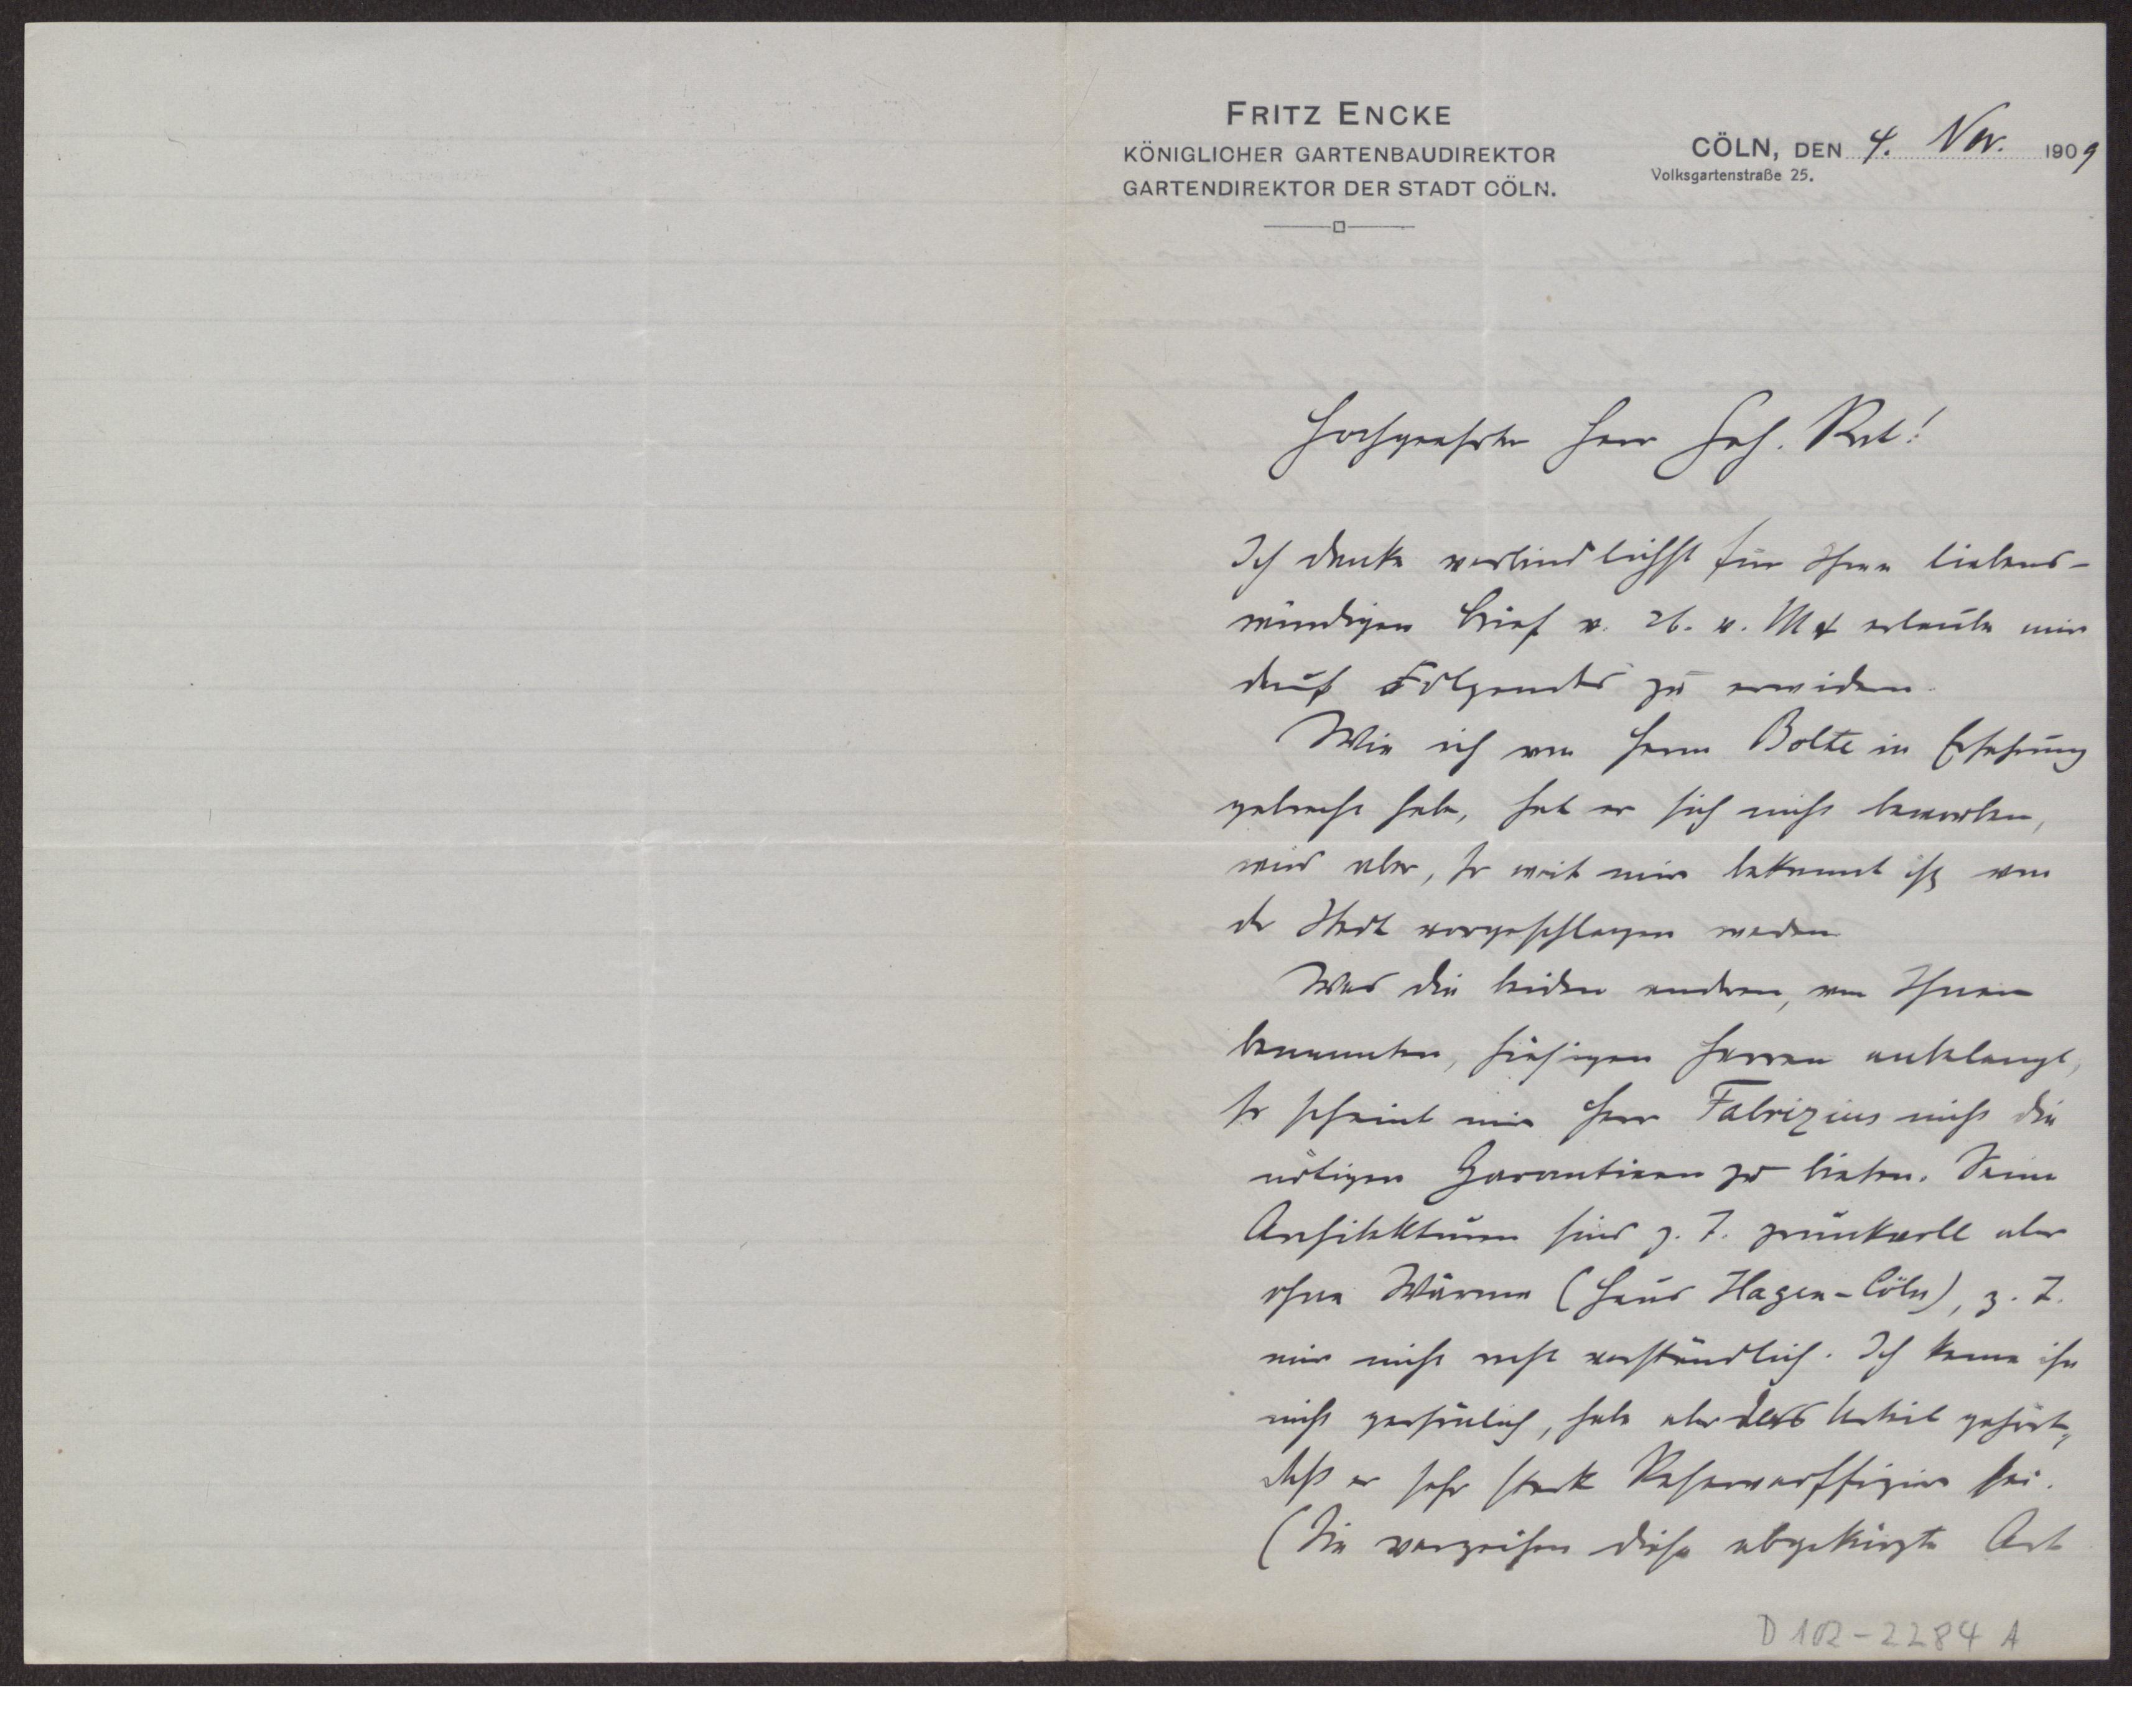 FRITZ ENCKE
KÖNIGLICHER GARTENBAUDIREKTOR
GARTENDIREKTOR DER STADT CÖLN.
CÖLN, DEN 4. Nov. 1909
Volksgartenstraße 25.
Hochgeehrter Herr Geh. Rat!
Ich danke verbindlichst für Ihren liebens-
würdigen Brief v. 26. v. M & erlaube mir
drauf Folgendes zu erwidern.
Wie ich von Herrn Bolte in Erfahrung
gebracht habe, hat er sich nicht beworben,
wird aber, so weit mir bekannt ist von
der Stadt vorgeschlagen werden
Was die beiden anderen, von Ihnen
benannten, hiesigen Herren anbelangt,
so scheint mir Herr Fabrizius nicht die
nötigen Garantieen zu bieten. Seine
Architekturen sind z. T. prunkvoll aber
ohne Wärme (Haus Hagen-Cöln), z. T.
mir nicht recht verständlich. Ich kenne ihn
nicht persönlich, habe aber das Urteil gehört,
daß er sehr stark Reserveoffizier sei.
(Sie verzeihen diese abgekürzte Art
D 102-2284 A